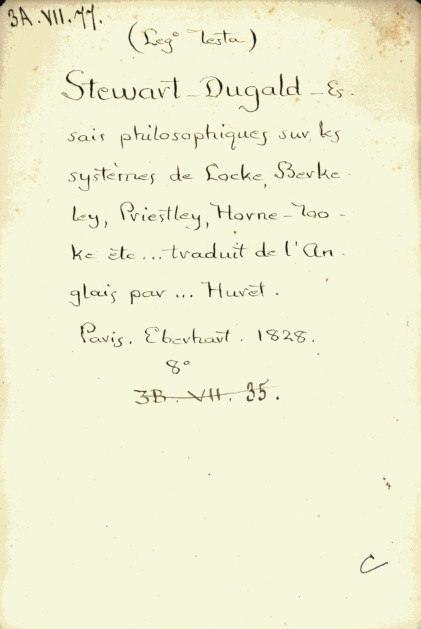 3A.VII.77.
(Leg° Testa)
Stewart - Dugald - Es-
sais philosophiques sur les
systèmes de Locke, Berke-
ley, Priestley, Horne-Too-
ke etc... traduit de l'An-
glais par ... Huret.
Paris. Eberhart. 1828.
8°
3B. VII. 35.
C